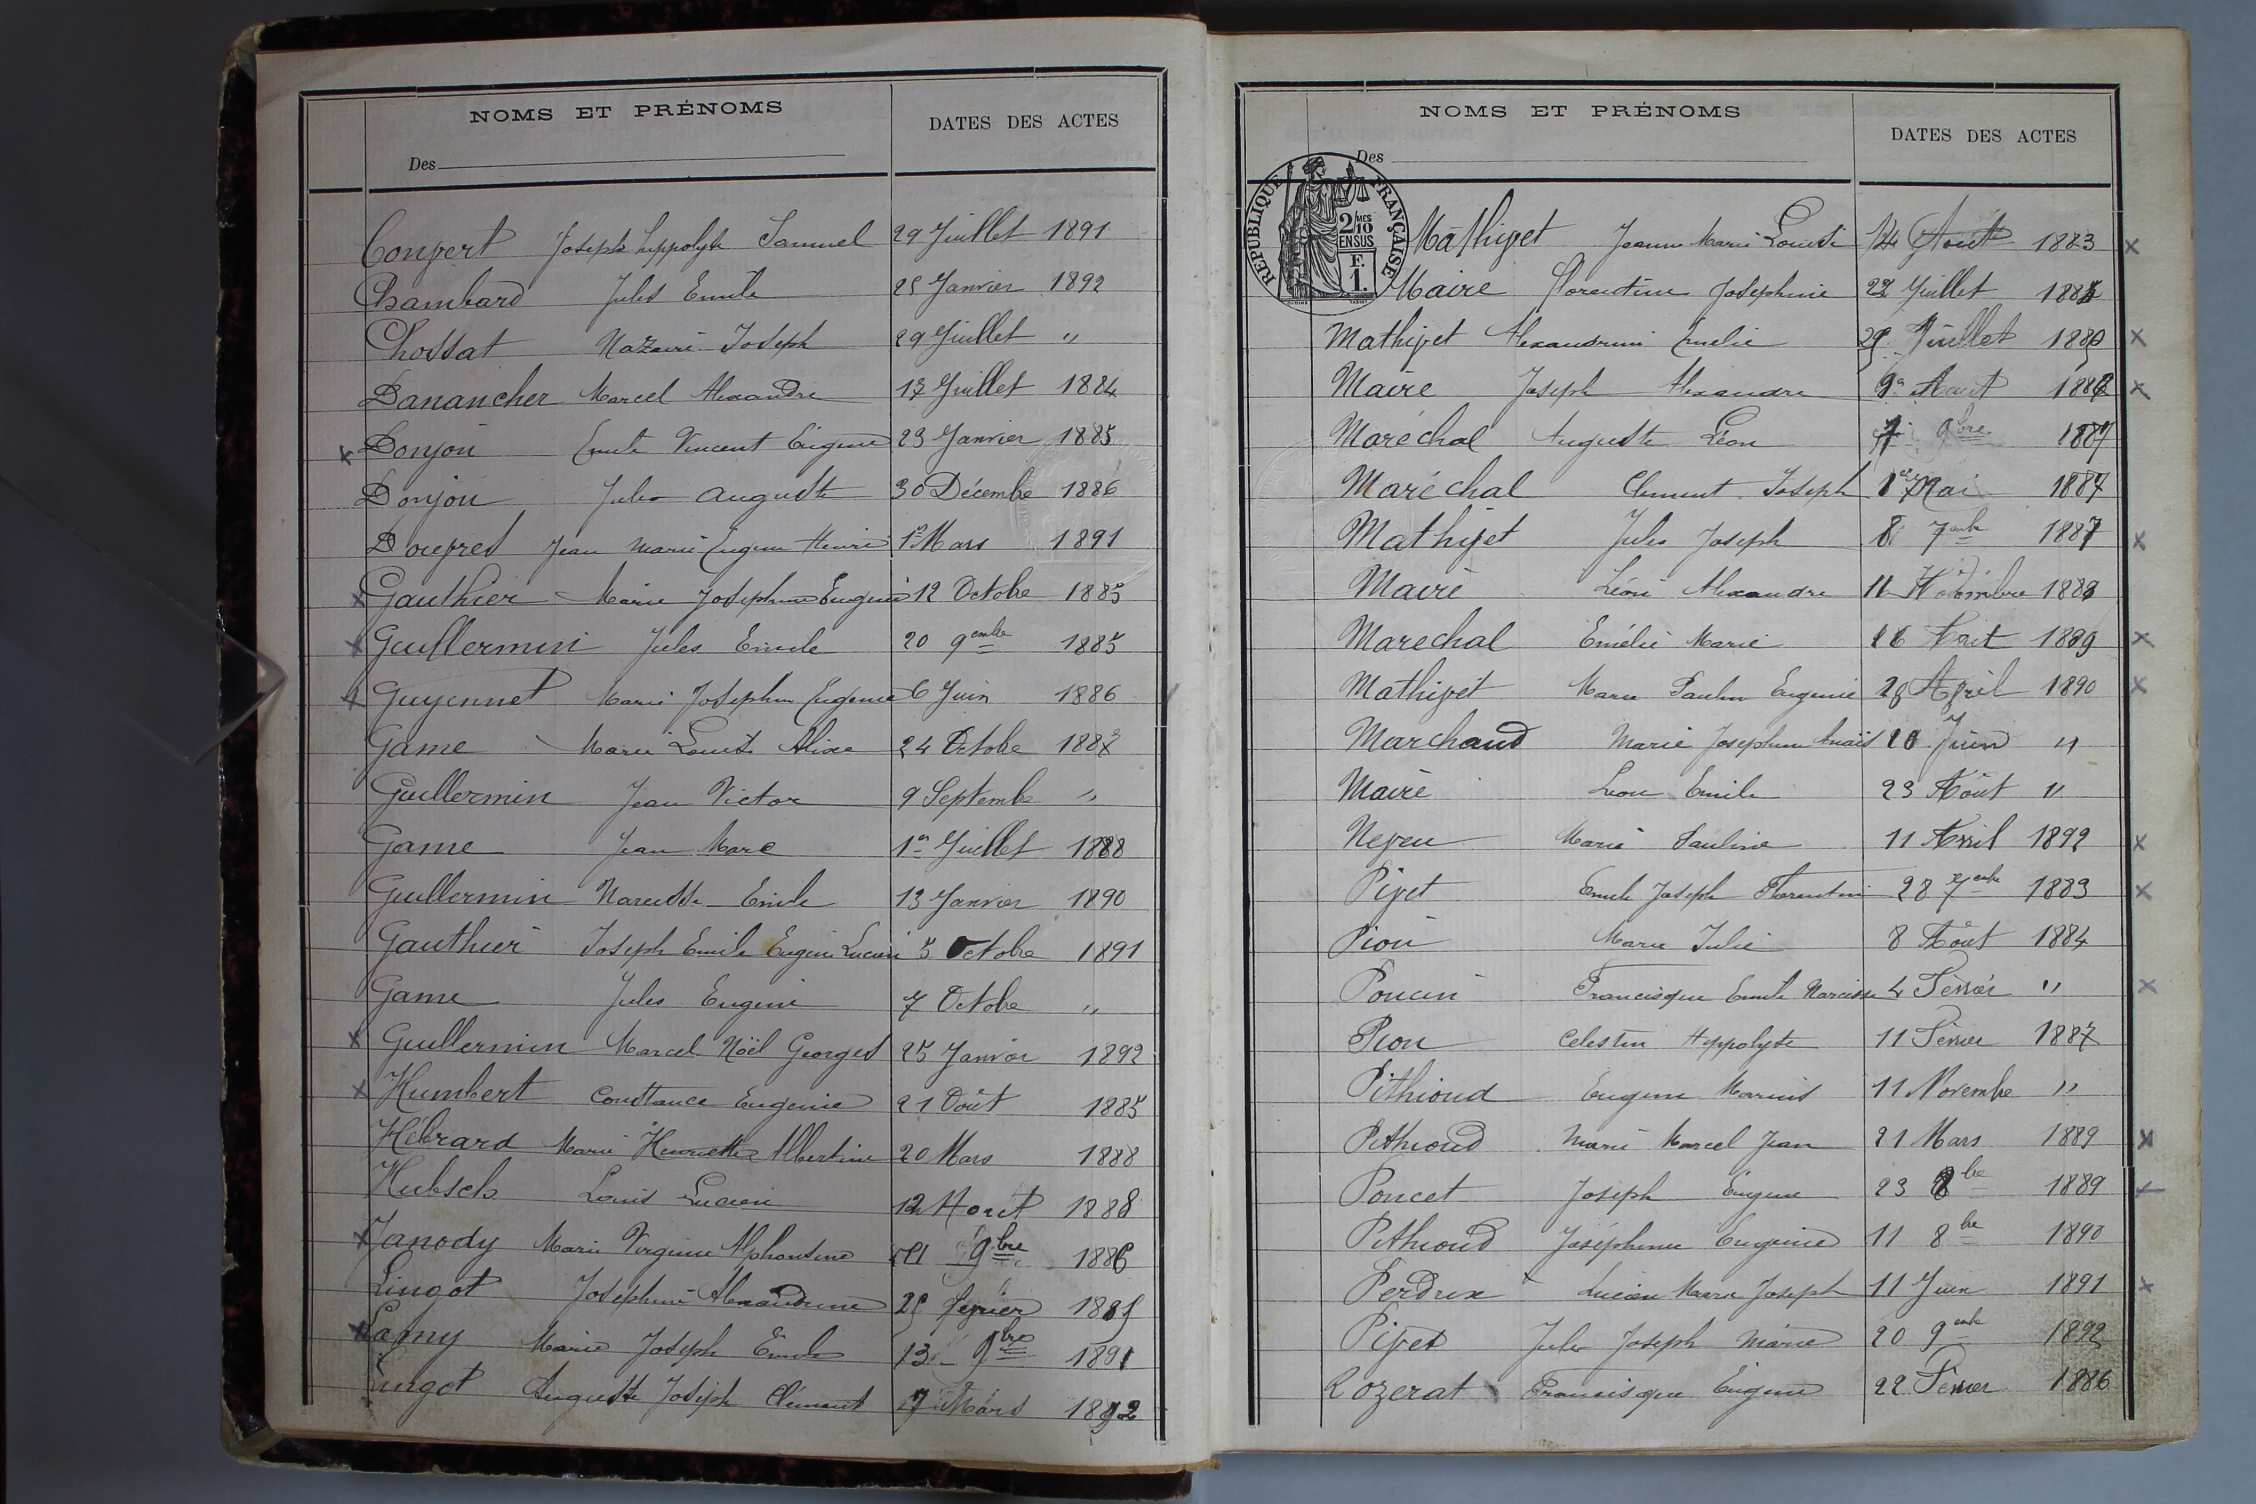 NOMS ET PRÉNOMS
DATES DES ACTES
Des
Convert Joseph hyppolyte Samuel 29 Juillet 1891
Chambard Jules Emile 25 Janvier 1892
Chossat Nazaire Joseph 29 Juillet "
Danancher Marcel Alexandre 17 Juillet 1884
x Donjon Emile Vincent Eugène 23 Janvier 1885
Donjon Jules Auguste 30 Décembre 1886
Jean Marie Eugene Henri 1er Mars 1891
x Gauthier Marie Josephine Eugenie 12 Octobre 1885
x Guillermin Jules Emile 20 9embre 1885
x Guyennet Marie Josephine Eugenie 6 Juin 1886
Game Marie Louise Alixe 24 Octobre
Guillermin Jean Victor 9 Septembre "
Game Jean Marc 1er Juillet 1888
Guillermin Narcisse Emile 13 Janvier 1890
Gauthier Joseph Emile Eugène Lucien 5 Octobre 1891
Game Jules Eugène 7 Octobre "
x Guillermin Marcel Noël Georges 25 Janvier 1892
x Humbert Constance Eugenie 21 Août 1885
Hébrard Marie Henriette Albertine 20 Mars 1888
Hubsch Louis Lucien 12 Aout 1888
x Janody Marie Virginie Alphonsine 9bre 1886
Lingot Josephine Alexandrine 25 fevrier
x Lamy Marie Joseph Emile 13 9bre 1891
Lingot Auguste Joseph Clément Mars 1892
NOMS ET PRÉNOMS
DATES DES ACTES
Des
RÉPUBLIQUE FRANÇAISE
2/10 MES
EN SUS
F.
1.
Mathivet Jeanne Marie Louise Août 1883 x
Maire Florentine Josephine Juillet
Mathivet Alexandrine Emelie Juillet x
Maire Joseph Alexandre Aout x
Maréchal Auguste Léon 9bre 1887
Maréchal Clement Joseph 1er Mai 1887
Mathivet Jules Joseph 8 7embre 1887 x
Maire Léon Alexandre 11 Novembre
Marechal Emélie Marie 16 Aout 1889 x
Mathivet Marie Paulin Eugenie 28 Avril 1890 x
Marchand Marie Josephine Anaïs 10 Juin "
Maire Leon Emile 23 Août "
Neveu Marie Pauline 11 Avril 1892 x
Pivet Emile Joseph Florentin 28 7embre 1883 x
Pion Marie Julie 8 Août 1884
Poncin Francisque Emile Narcisse 4 Février " x
Pion Celestin Hyppolyte 11 Février 1887
Pithioud Eugene Marius 11 Novembre "
Pithioud Marie Marcel Jean 21 Mars 1889 x
Poncet Joseph Eugene 23 8bre 1889 x
Pithioud Joséphine Eugenie 11 8bre 1890
Perdrix Lucien Marie Joseph 11 Juin 1891 x
Pivet Jules Joseph Marie 20 9embre 1892
Rozerat Francisque Eugene 22 Février 1886